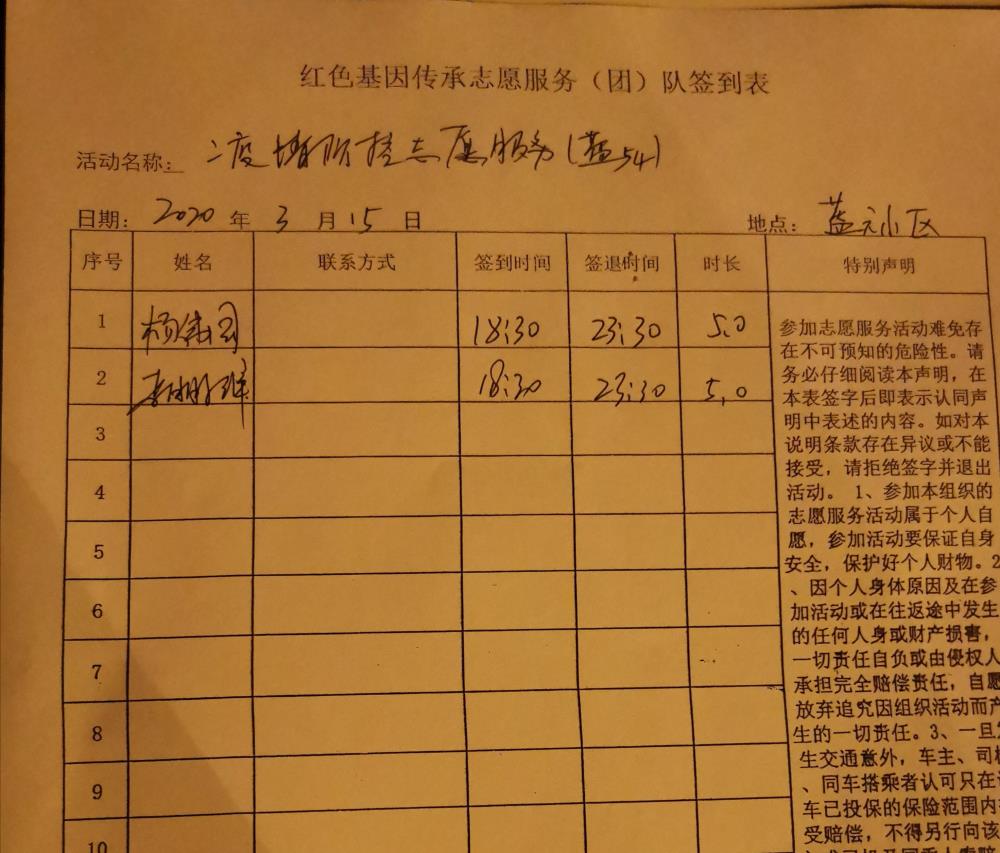 红色基因传承志愿服务（团）队签到表
活动名称：疫情防控志愿服务(蓝54)
日期：2020年3月15日 地点：蓝元小区
序号 姓名 联系方式 签到时间 签退时间 时长 特别声明
1 18:30 23:30 5.0
2 18:30 23:30 5.0
3
4
5
6
7
8
9
10
参加志愿服务活动难免存
在不可预知的危险性。请
务必仔细阅读本声明，在
本表签字后即表示认同声
明中表述的内容。如对本
说明条款存在异议或不能
接受，请拒绝签字并退出
活动。 1、参加本组织的
志愿服务活动属于个人自
愿，参加活动要保证自身
安全，保护好个人财物。2
、因个人身体原因及在参
加活动或在往返途中发生
的任何人身或财产损害，
一切责任自负或由侵权人
承担完全赔偿责任，自愿
放弃追究因组织活动而产
生的一切责任。3、一旦发
生交通意外，车主、司机
、同车搭乘者认可只在
车已投保的保险范围内
受赔偿，不得另行向该